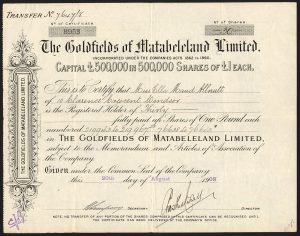 TRANSFER No 7617/8
No of Certificate
No of Shares
8953
30
The Goldfields of Matabeleland Limited.
INCORPORATED UNDER THE COMPANIES ACTS 1862 to 1900.
CAPITAL £500,000 IN 500,000 SHARES OF £1 EACH.
This is to Certify that Miss Ella Maud
of Clarence Crescent Windsor
is the Registered Holder of Thirty
fully paid up Shares of One Pound each
numbered
in THE GOLDFIELDS OF MATABELELAND LIMITED,
subject to the Memorandum and Articles of Association of
the Company.
Given under the Common Seal of the Company
this 20th day of August 1908
SECRETARY
DIRECTOR
NO TRANSFER OF ANY PORTION OF THE SHARES COMPRISED IN THIS CERTIFICATE CAN BE RECOGNISED UNTIL
THE CERTIFICATE HAS BEEN DEPOSITED AT THE COMPANY'S OFFICE.
THE GOLDFIELDS OF MATABELELAND LIMITED.